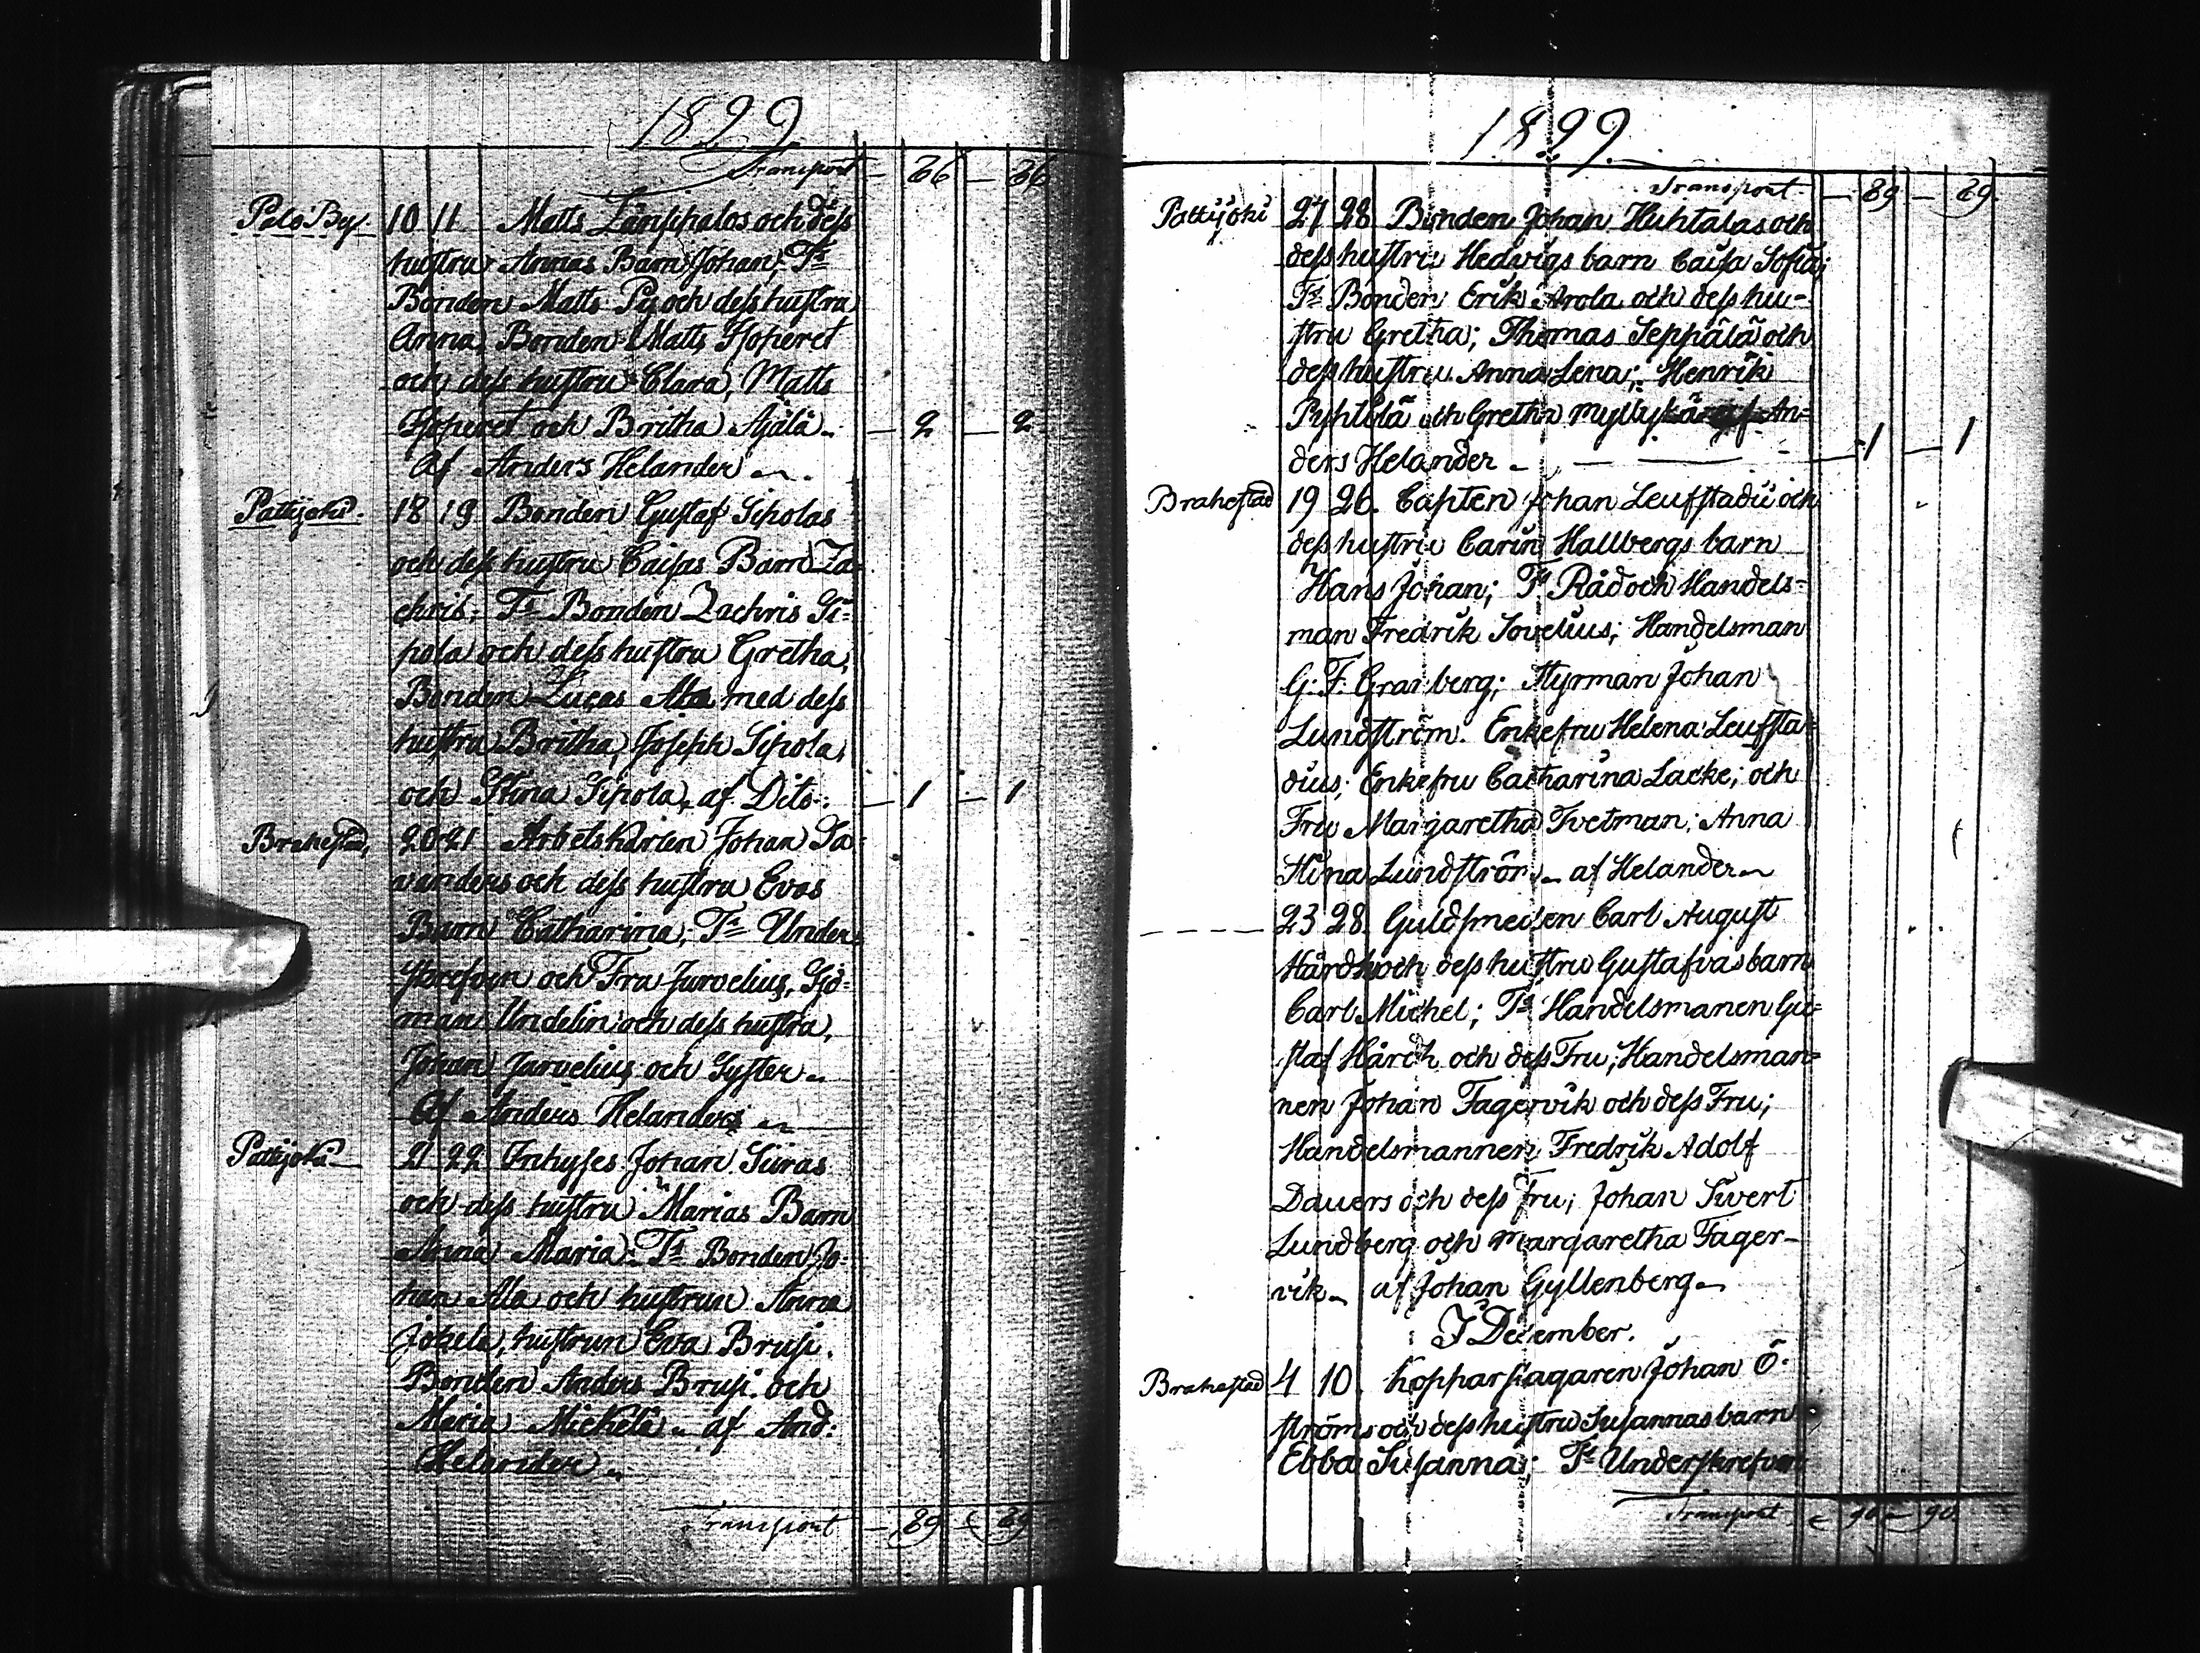 1829.
Transport — 86 — 86
Palo By. 10 11 Matts Lämppalos och dess
hustru Annas Barn Johan; Ts
Bonden Matts Py och dess hustru
Anna, Bonden Matts
och dess hustru Clara, Matts
och Britha Ajälä — 2 — 2
Af Anders Helander
Pattijoki. 18 19 Bonden Gustaf Sipolas
och dess hustru Caisas Barn Za-
chris; Ts Bonden Zachris Si-
pola och dess hustru Gretha,
Bonden Lucas Ala med dess
hustru Britha, Joseph Sipola,
och Stina Sipola, af Dito. — 1 — 1
Brahestad, 20 21 Arbetskarlen Johan Sa-
vanders och dess hustru Evas
Barn Catharina; Ts Under-
skrefven och Fru Jurvelius, Sjö-
man Undelin och dess hustru,
Johan Jurvelius och Syster
Af Anders Helanders
Pattijoki 21 22 Inhyses Johan Siiras
och dess hustru Marias Barn
Anna Maria; Ts Bonden Jo-
han Ala och hustrun Anna
Jokela, hustrun Eva Brusi.
Bonden Anders Brusi och
Maria Mickelä af And:
Helander
Transport — 89 — 89
1829.
Transport — 89 — 89.
Pattijoki 27 28 Bonden Johan Huhtalas och
dess hustru Hedvigs barn Caisa Sofia;
Ts Bonden Erik Arola och dess hu-
stru Gretha; Thomas Seppälä och
dess hustru Anna Lena; Henrik
Pyhtilä och Gretha An-
ders Helander — 1 — 1
Brahestad 19 26. Capten Johan Leufstadii och
dess hustru Carin Hallbergs barn
Hans Johan; Ts Råd och Handels-
man Fredrik Sovelius; Handelsman
G: F: Granberg; Styrman Johan
Lundström. Enkefru Helena Leufsta-
dius; Enkefru Catharina Lacke; och
Fru Margaretha Tvetman; Anna
Stina Lundström af Helander
23 28. Guldsmeden Carl August
Hårdh och dess hustru Gustafvas barn
Carl Michel; Ts Handelsmanen Gu-
staf Hårdh och dess Fru; Handelsman-
nen Johan Fagervik och dess Fru;
Handelsmannen Fredrik Adolf
Dauers och dess Fru; Johan Sivert
Lundberg och Margaretha Fager-
vik af Johan Gyllenberg
I December.
Brahestad 4 10. Kopparslagaren Johan Ö-
ströms och dess hustru Susannas barn
Ebba Susanna; Ts Underskrefven
Transport — 90 — 90.